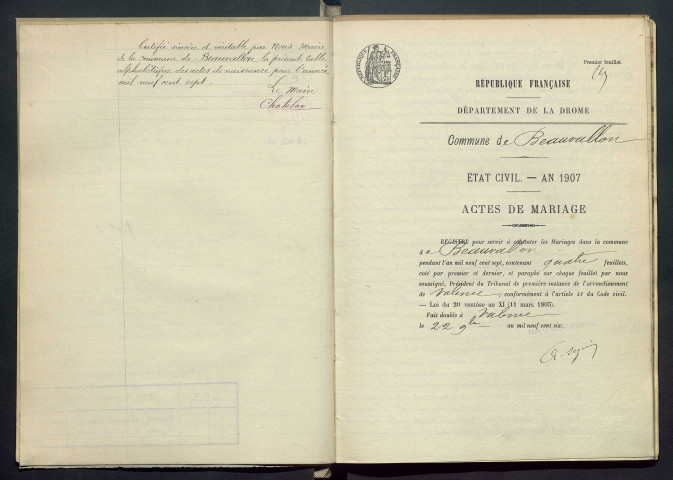 Certifié sincère et véritable par Nous Maire
de la commune de Beauvallon la présente table
alphabétique des actes de naissance pour l'année
mil neuf cent sept.
Le Maire
RÉPUBLIQUE FRANÇAISE
Premier feuillet.
RÉPUBLIQUE FRANÇAISE
DÉPARTEMENT DE LA DROME
Commune de Beauvallon
ÉTAT CIVIL. — AN 1907
ACTES DE MARIAGE
REGISTRE pour servir à constater les Mariages dans la commune
de Beauvallon
pendant l'an mil neuf cent sept, contenant quatre feuillets,
coté par premier et dernier, et paraphé sur chaque feuillet par nous
soussigné, Président du Tribunal de première instance de l'arrondissement
de Valence, conformément à l'article 41 du Code civil.
— Loi du 20 ventôse an XI (11 mars 1803).
Fait double à Valence
le 22 9bre an mil neuf cent six.